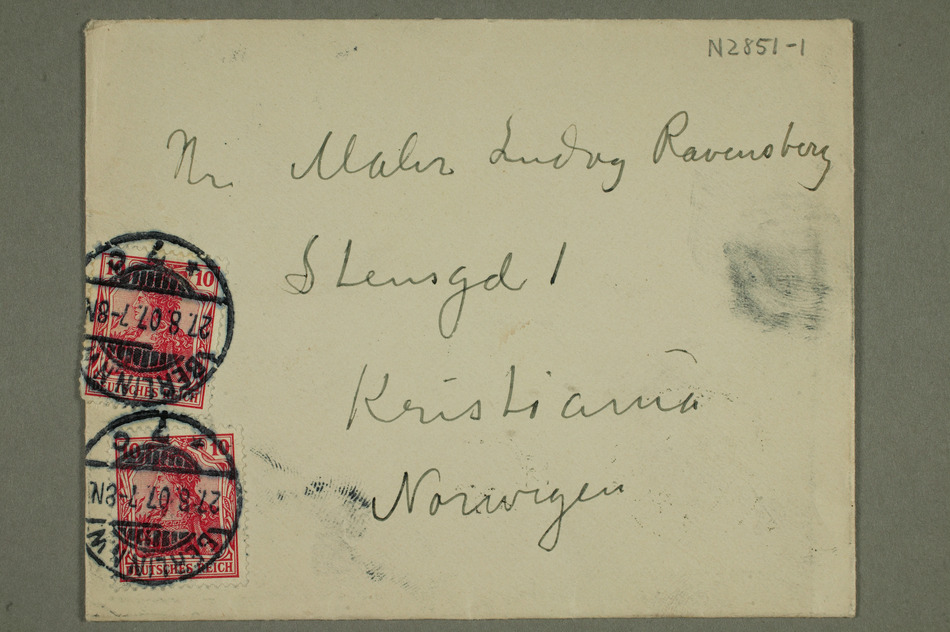 N2851-1
Hr. Maler Ludvig Ravensberg
Stensgd 1
Kristiania
Norwegen
10 10
27.8.07.7-8N
BERLIN
DEUTSCHES REICH
10 10
27.8.07.7-8N
BERLIN W
DEUTSCHES REICH